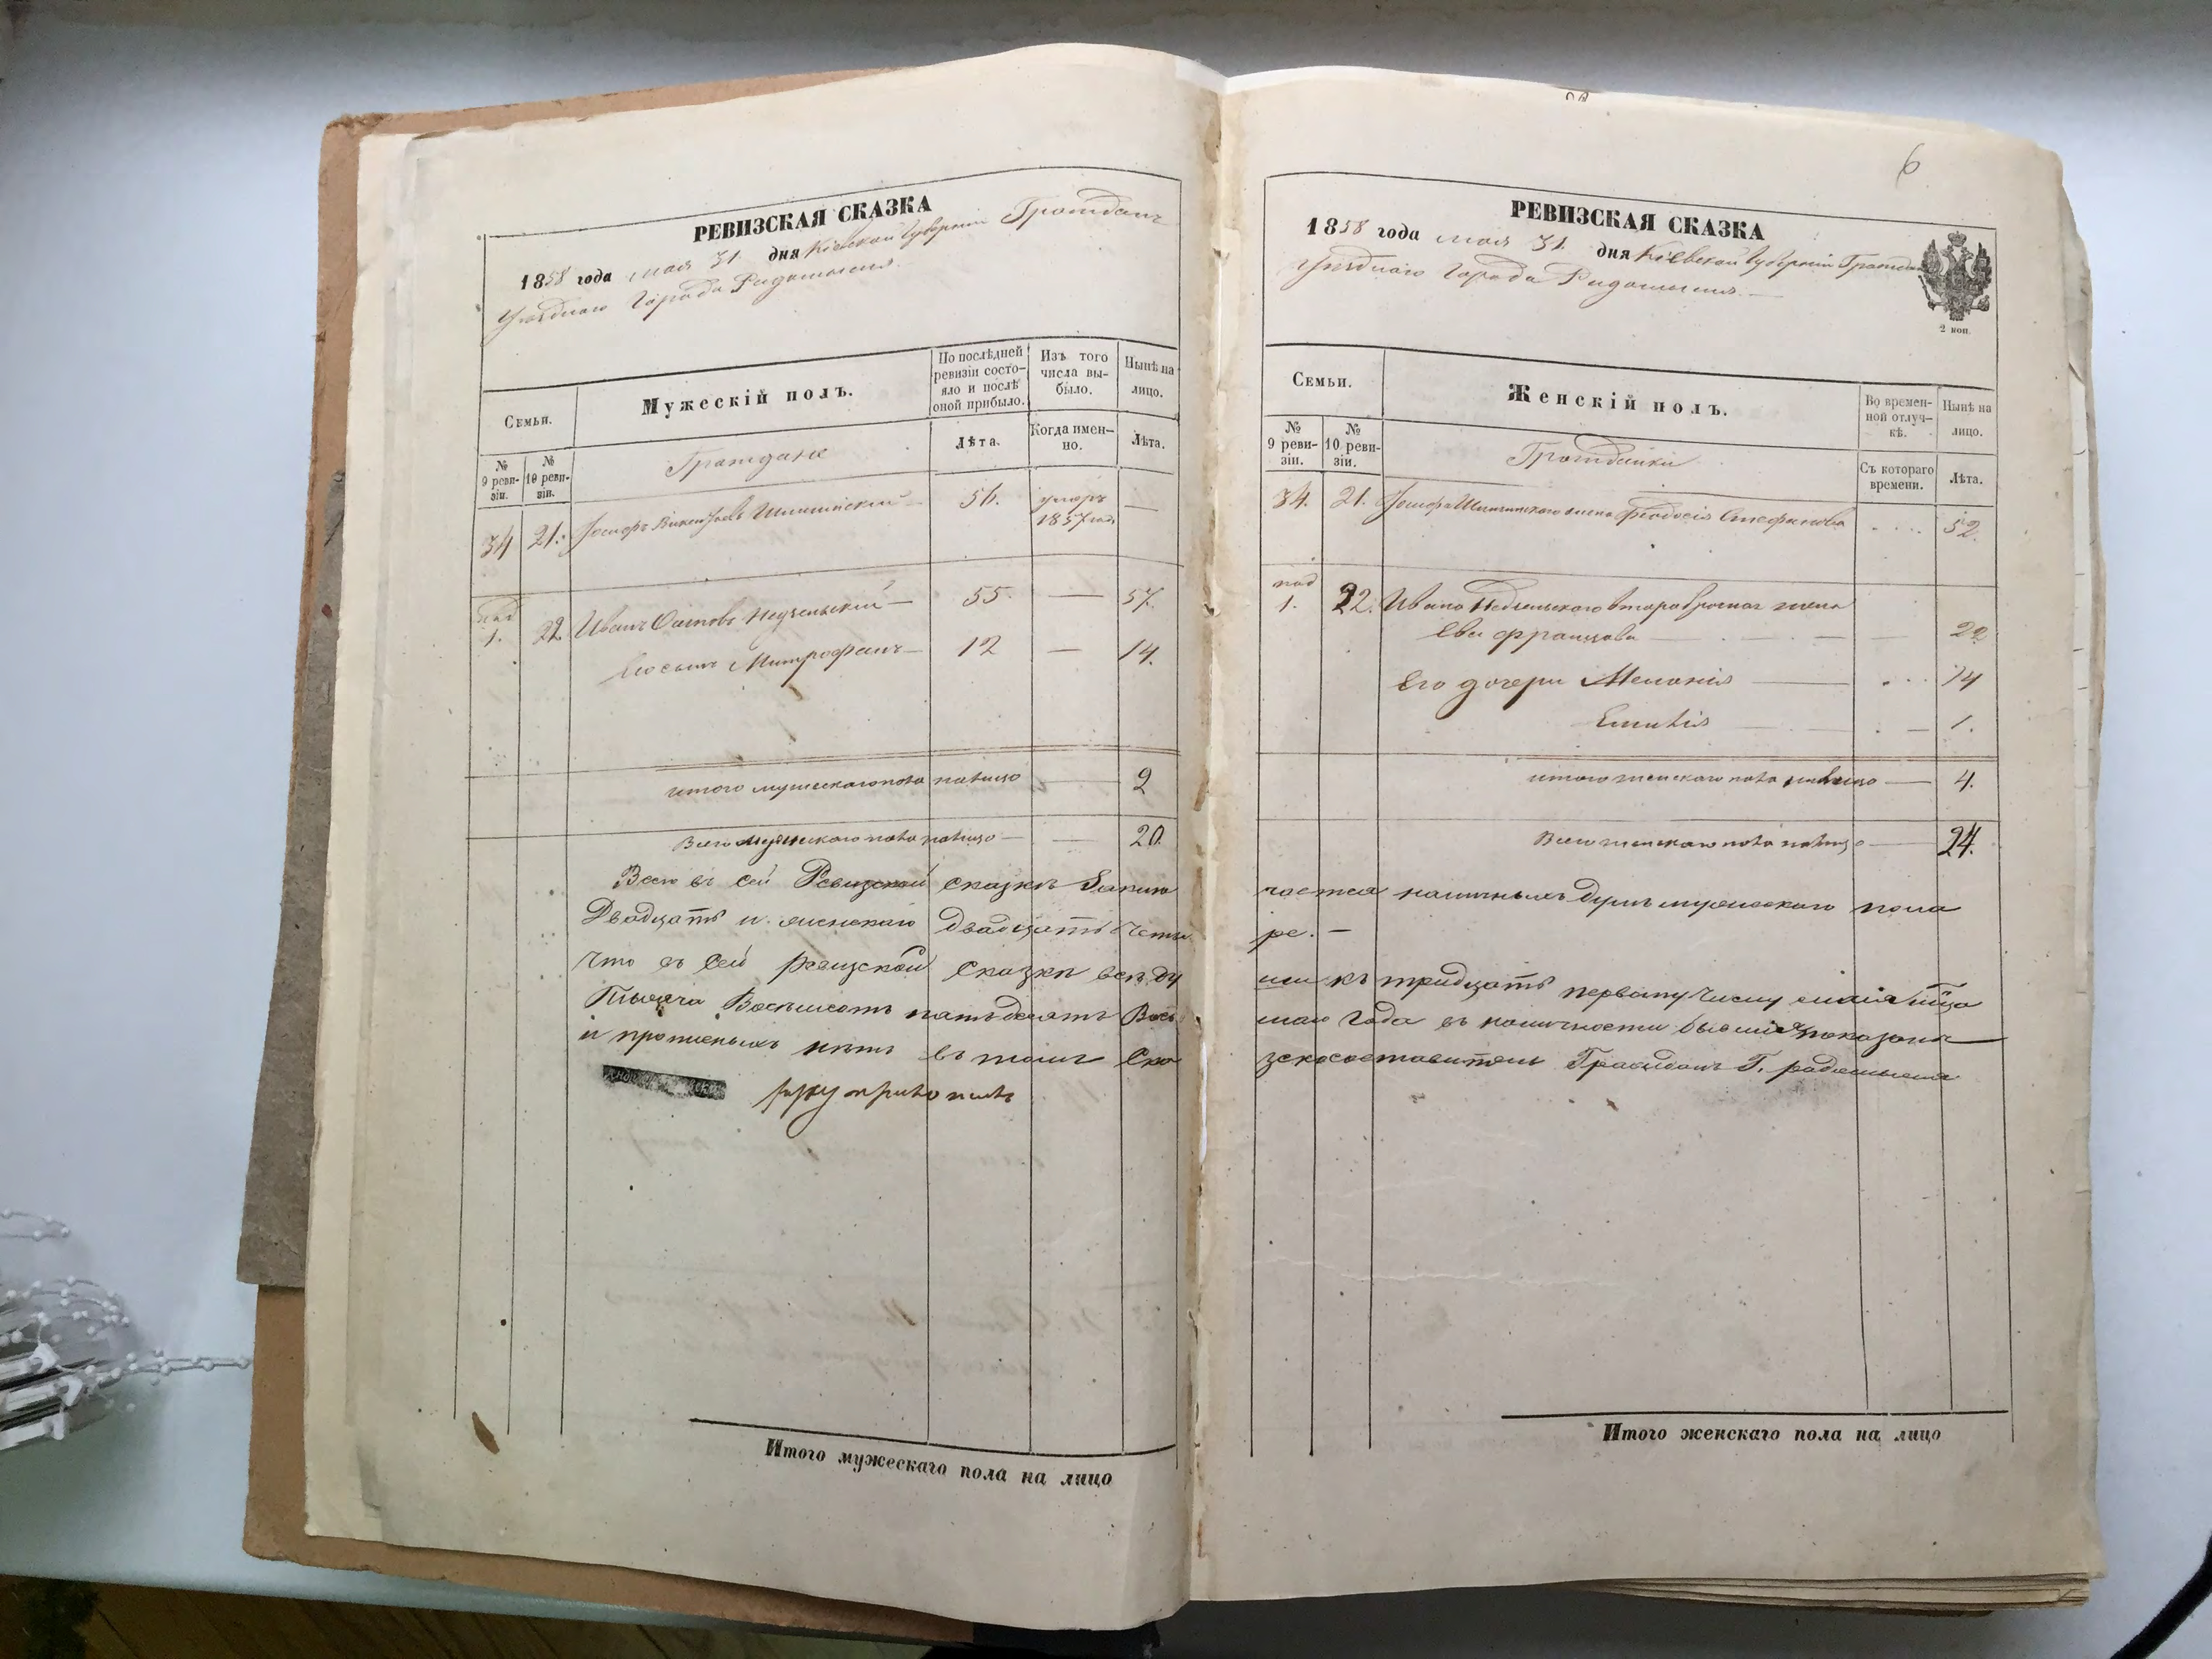 РЕВИЗСКАЯ СКАЗКА
1858 года мая 31 дня Кіевской Губерніи Гражданъ
Уѣзднаго Города Радомысля
Семьи.
Мужескій полъ.
По послѣдней ревизіи состо-
яло и послѣ
оной прибыло.
Изъ того
числа вы-
было.
Нынѣ на
лицо.
№
9 реви-
зіи.
№
10 реви-
зіи.
Граждане
Лѣта.
Когда имен-
но.
Лѣта.
34 21. Іосифъ Викентіевъ 56. умеръ —
1857 года
под
1. 22. Иванъ Осиповъ — 55. — 57.
Его сынъ Митрофанъ — 12 — 14.
итого мужескаго пола налицо — 2
Всего мужескаго пола налицо — 20.
Всего въ сей Ревизской сказкѣ Заклю
Двадцать и женскаго двадцать четы
Что въ сей ревизской Сказкѣ всѣ ду
Тысяча Восемьсотъ пятьдесятъ Вось
и прописныхъ нѣтъ въ томъ Ска
руку приложилъ
Итого мужескаго пола на лицо
6
РЕВИЗСКАЯ СКАЗКА
1858 года мая 31. дня Кіевской Губерніи Гражданъ
Уѣзднаго Города Радомысля —
2 коп.
Семьи.
Женскій полъ.
Во времен-
ной отлуч-
кѣ.
Нынѣ на
лицо.
№
9 реви-
зіи.
№
10 реви-
зіи.
Гражданки
Съ котораго
времени.
Лѣта.
34. 21. Іосифа жена Феодосія Стефанова .... 52.
под
1. 22. Ивана второбрачная жена
Ева Францова — 22
Его дочери Меланія — ... 14
Емилія — 1.
итого женскаго пола налицо — 4.
Всего женскаго пола налицо — 24.
чается наличныхъ душъ мужескаго пола
ре. —
ши къ тридцать первому числу мая мѣсяца
маго Года въ наличности бывшія показаны
зскосоставитель Гражданъ Г. радомысля
Итого женскаго пола на лицо